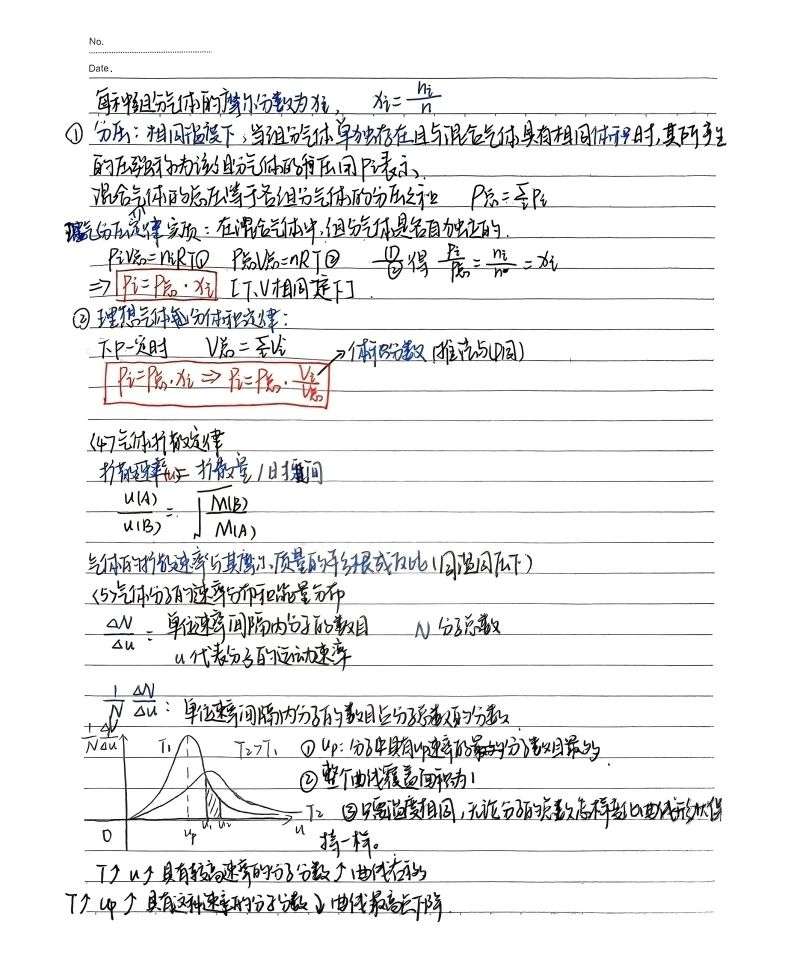 No.
Date.
每种组分气体的摩尔分数为xi, xi = ni/n
① 分压:相同温度下,当组分气体单独存在且与混合气体具有相同体积时,其所产生
的压强称为该组分气体的分压用Pi表示。
混合气体的总压等于各组分气体的分压之和 P总=∑Pi
理气分压定律实质:在混合气体中,组分气体是各自独立的.
PiV总=niRT① P总V总=nRT② ①/②得 Pi/P总 = ni/n = xi
⇒ Pi=P总·xi [T、V相同定下]
② 理想气体分体积定律:
T、P一定时 V总=∑Vi → 体积分数 (推论与①同)
Pi=P总·xi ⇒ Pi=P总·Vi/V总
(4)气体扩散定律
扩散速率(u)= 扩散量/时间
u(A)/u(B) = √M(B)/M(A)
气体的扩散速率与其摩尔质量的平方根成反比(同温同压下)
(5)气体分子的速率分布和能量分布
ΔN/Δu = 单位速率间隔内分子的数目 N 分子总数
u代表分子的运动速率
1/N ΔN/Δu : 单位速率间隔内分子的数目占分子总数的分数
1/N ΔN/Δu T₁ T₂>T₁ ① up:分子中具有up速率的分子数目最多
② 整个曲线覆盖面积为1
T₂ ③ 只要温度相同,无论分子的总数怎样变化,曲线形状保
O up u₁ u₂ u 持一样。
T↑ u↑ 具有较高速率的分子分数↑ 曲线右移
T↑ up↑ 具有这种速率的分子分数↓ 曲线最高点下降.